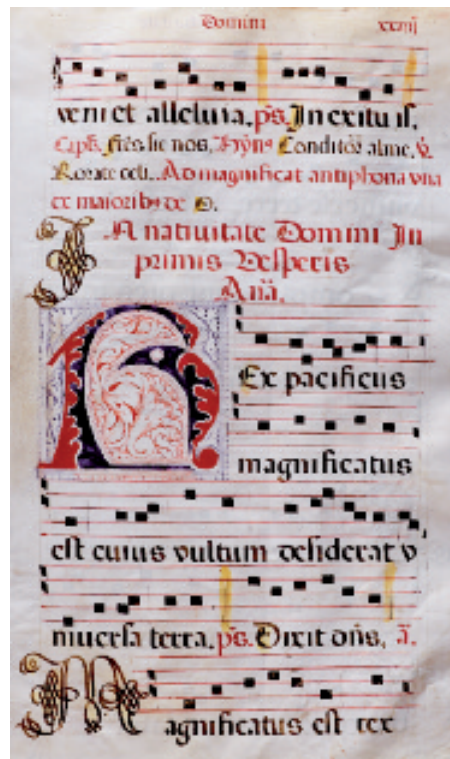 Domini xxiiij
veniet alleluia. ps. In exitu isr.
Capl. Frēs sic nos, Hyn9 Conditor alme, V.
Rorate celi. Ad magnificat antiphona vna
ex maiorib9 de O.
IN natiuitate Domini In
primis Vesperis
Anā.
REx pacificus
magnificatus
est cuius vultum desiderat v
niuersa terra. ps. Dixit dn̄s, ā.
Magnificatus est rex